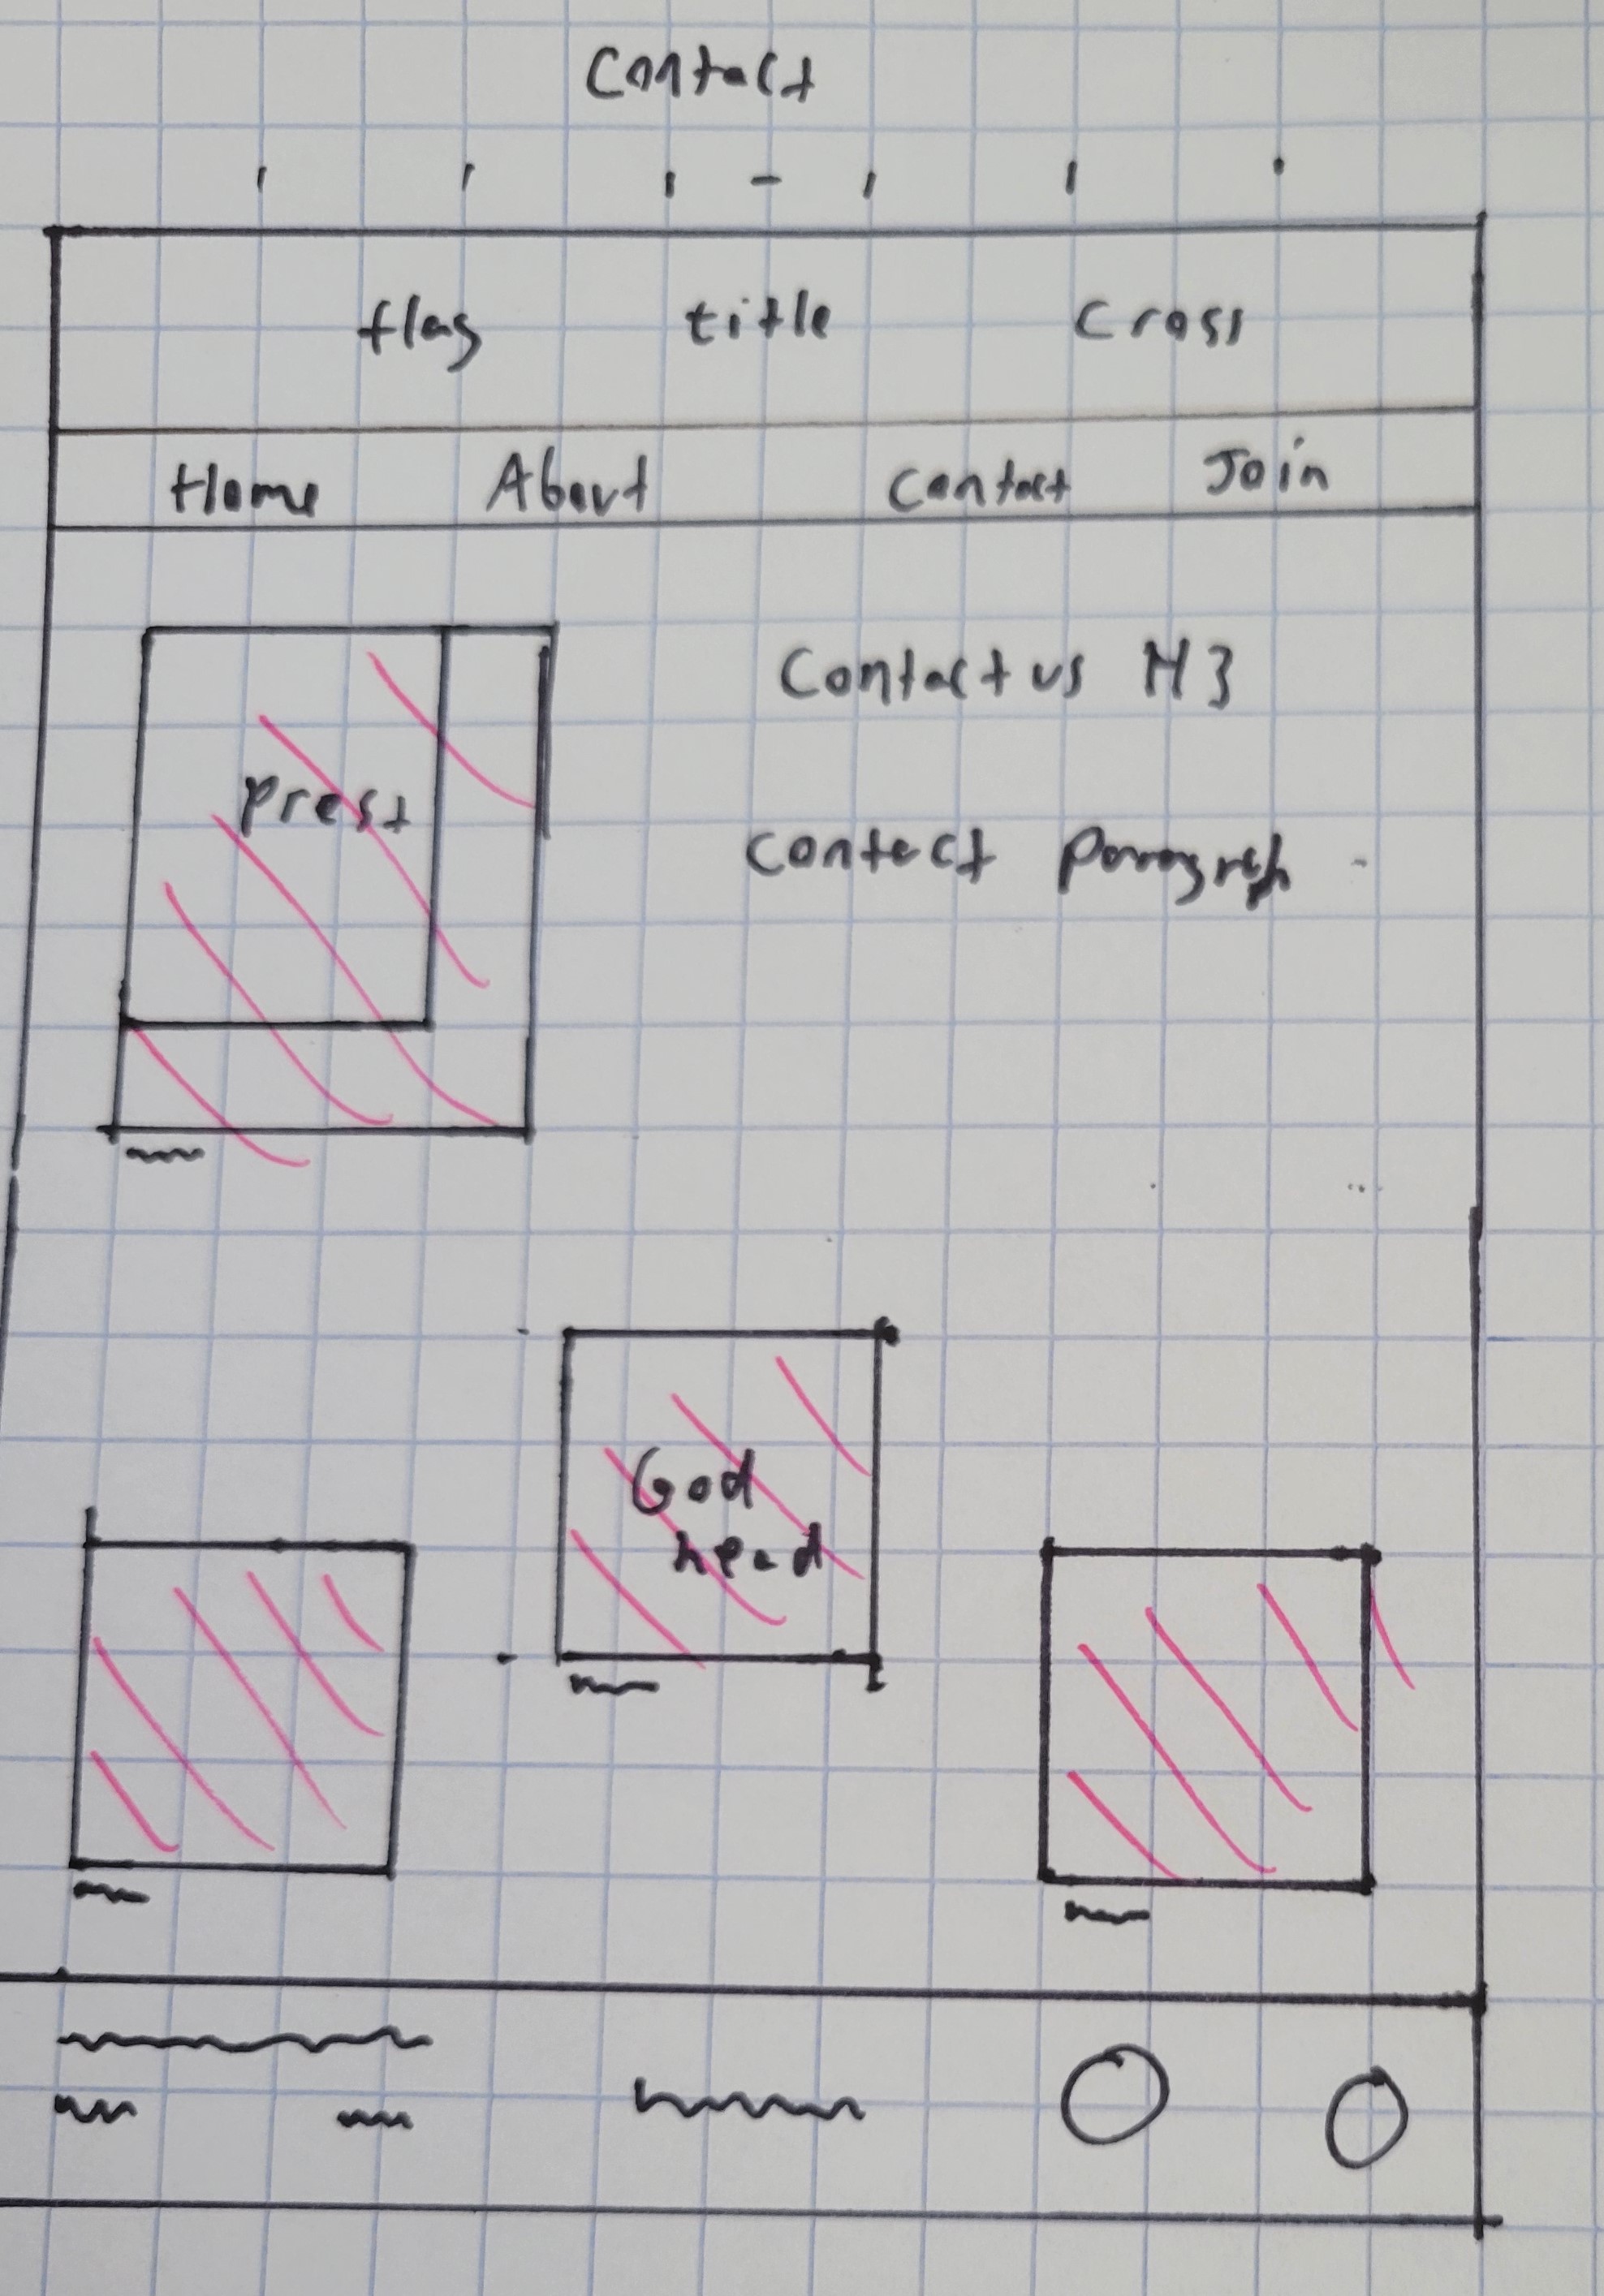 Contact
flag title Cross
Home About Contact Join
Contact us H3
prest
Contact paragraph
God
head